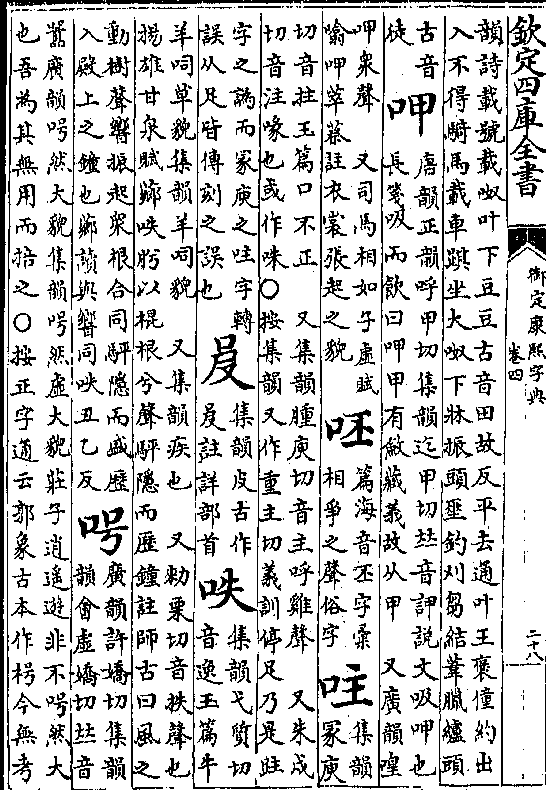 欽定四庫全書
御定康熙字典
卷四
二十八
韻詩載號載呶叶下豆豆古音田故反平去通叶王褒僮約出
入不得騎馬載車踑坐大呶下牀振頭垂釣刈芻結葦臘纑頭
古音徒 呷 唐韻正韻呼甲切集韻迄甲切𠀤音評説文吸呷也
長箋吸而飲曰呷甲有斂藏義故从甲 又廣韻喤
呷衆聲 又司馬相如子虚賦
噏呷萃蔡註衣裳張起之貌 呸 篇海音丕字彙
相爭之聲俗字 㕹 集韻冡庾
切音拄玉篇口不正 又集韻腫庾切音主呼雞聲 又朱戍
切音注喙也或作咮○按集韻又作重主切義訓停足乃是跓
字之譌而冢庾之㕹字轉
誤从足皆傳刻之誤也 𠬝 集韻𠬝古作
𠬝註詳部首 呹 集韻弋質切
音逸玉篇牛
羊呞草貌集韻羊呞貌 又集韻疾也 又勅栗切音抶聲也
揚雄甘泉賦薌呹肸以棍根兮聲駍隱而歷鐘註師古曰風之
動樹聲響振起衆根合同駍隱而盛歷
入殿上之鐘也薌讀與響同呹丑乙反 呺 廣韻許嬌切集韻
韻會虚嬌切𠀤音
嚻廣韻呺然大貌集韻呺然虚大貌莊子逍遥遊非不呺然大
也吾為其無用而掊之○按正字通云郭象古本作枵今無考